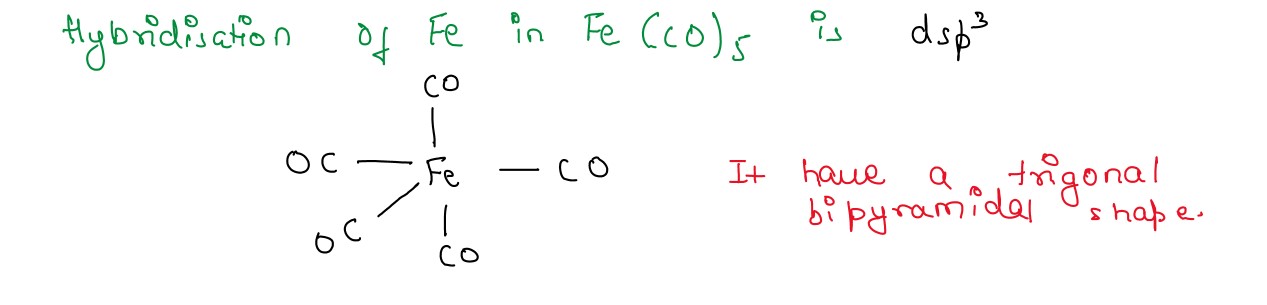 Hybridisation of Fe in Fe(CO)5 is dsp³
CO
OC — Fe — CO
OC
CO
It have a trigonal
bipyramidal shape.